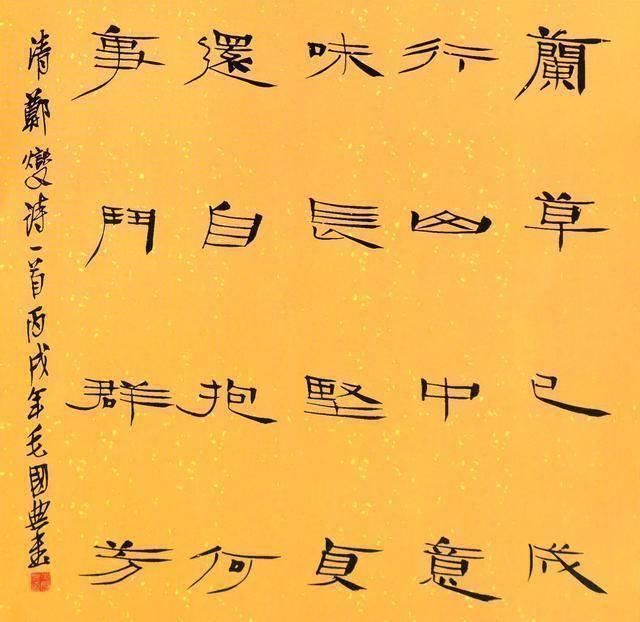 蘭草已成
行山中意
味長堅貞
還自抱何
事鬥群芳
清鄭燮詩一首丙戌年毛國典書